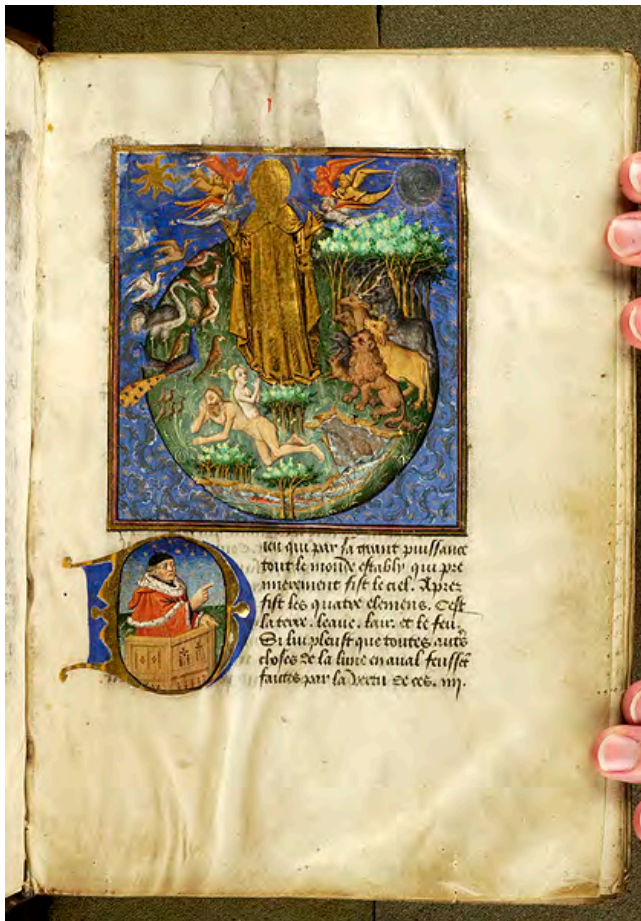 Dieu qui par sa grant puissance
tout le monde establÿ qui pre
mierement fist le ciel. Aprez
fist les quatre elemens. Cest
la terre. leaue. lair. et le feu.
Si lui pleust que toutes autres
choses de la lune en aual feussent
faittes par la vertu de ces. iiij.